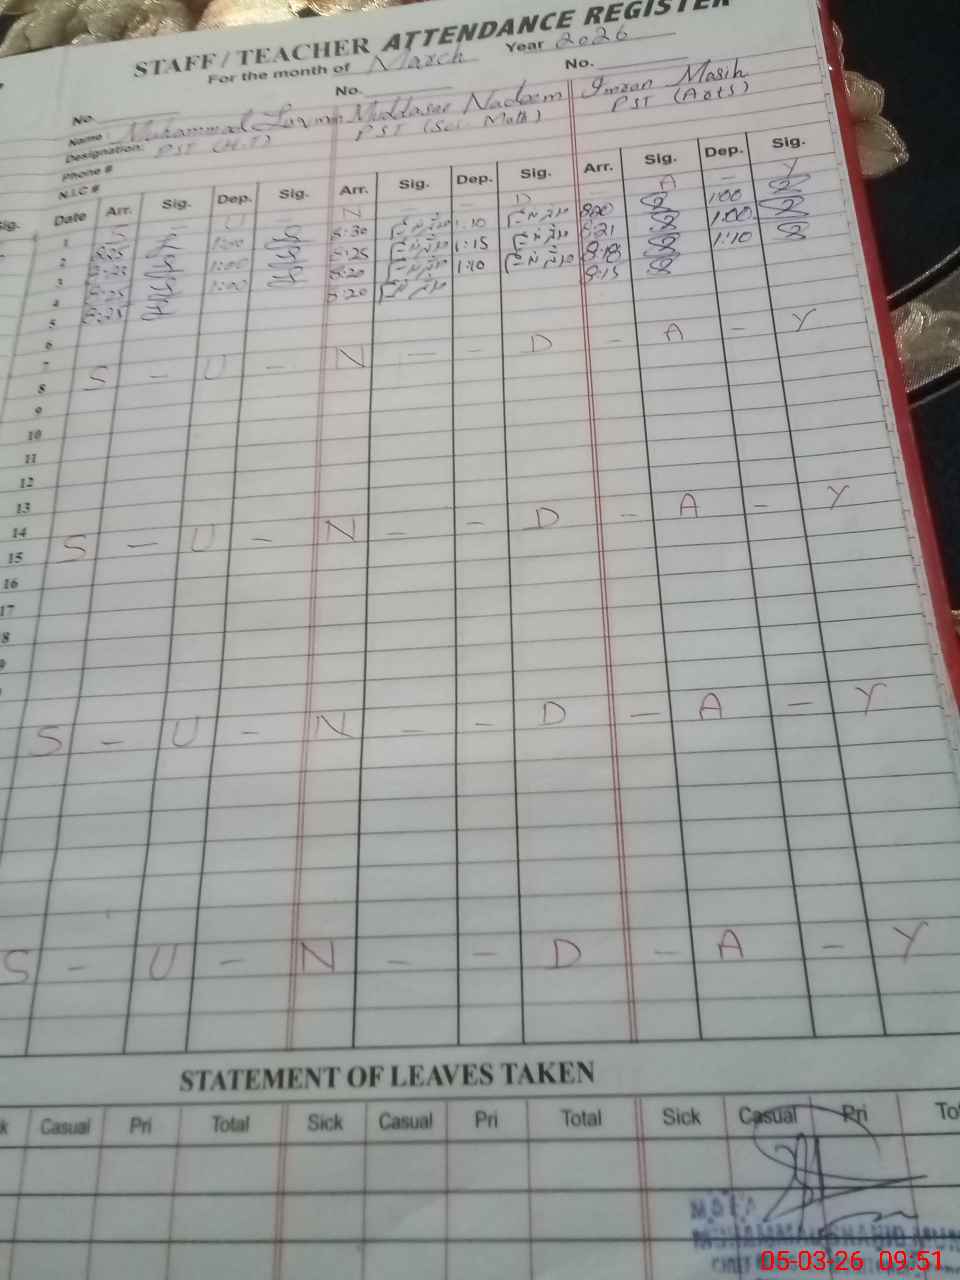 STAFF / TEACHER ATTENDANCE REGISTER
For the month of March Year 2026
No. No. No.
Name: Muhammad Muddasar Nadeem Imran Masih
Designation: PST (H.T) PST (Sci. Math) PST (Arts)
Phone #
N.I.C #
Sig. Date Arr. Sig. Dep. Sig. Arr. Sig. Dep. Sig. Arr. Sig. Dep. Sig.
1 S - U - N - - D - A - Y
2 8:25 1:00 8:30 1:10 8:20 1:00
3 8:25 1:00 8:25 1:15 8:21 1:00
4 8:25 1:00 8:20 1:10 8:18 1:10
5 8:25 8:20 8:15
6
7
8 S - U - N - - D - A - Y
9
10
11
12
13
14
15 S - U - N - - D - A - Y
16
17
8
9
S - U - N - - D - A - Y
S - U - N - - D - A - Y
STATEMENT OF LEAVES TAKEN
k Casual Pri Total Sick Casual Pri Total Sick Casual Pri To
05-03-26 09:51